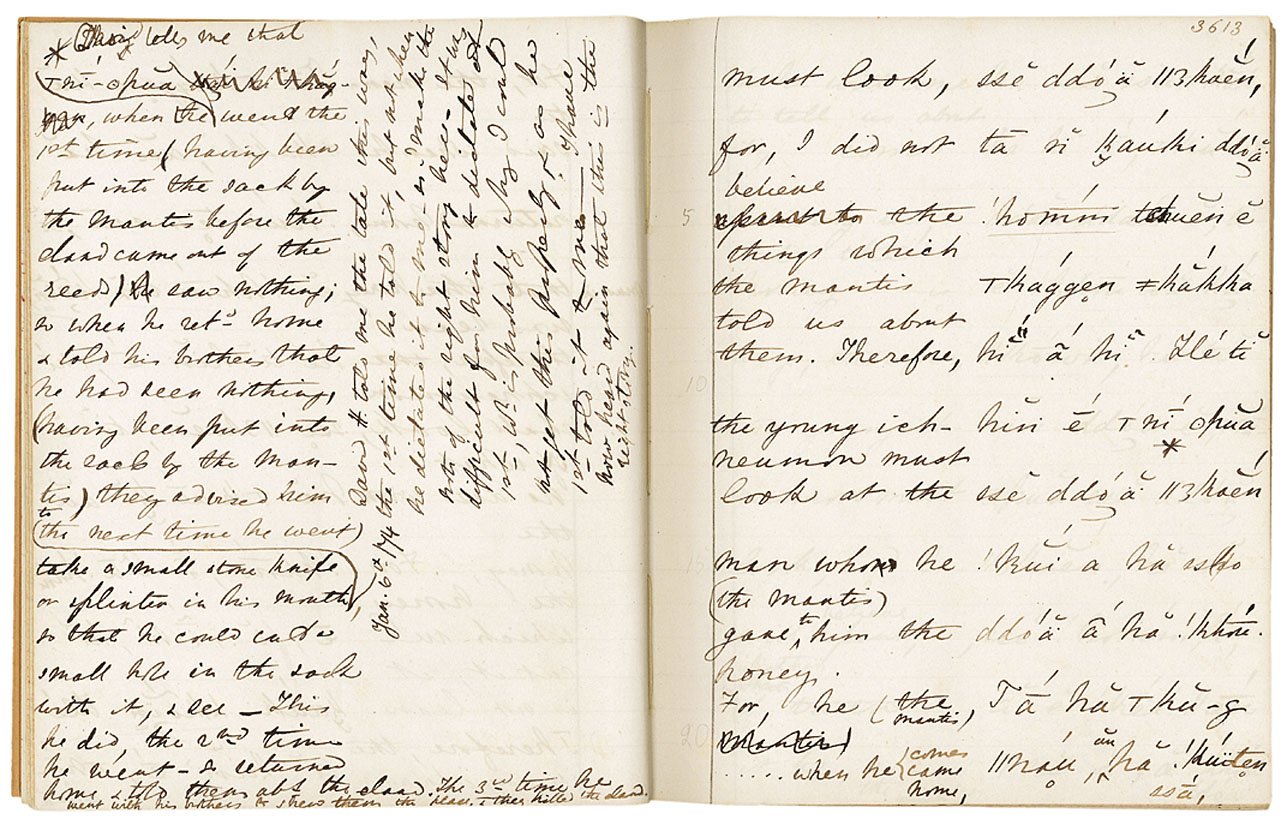 * David tells me that
ꞱnÍ-ʘpŭa
when (he) went the
1st time (having been
put into the sack by
the Mantis before the
eland came out of the
reeds) he saw nothing;
so when he retd home
& told his brothers that
he had seen nothing,
(having been put into
the sack by the Man-
tis) they advised him
to
(the next time he went)
take a small stone knife
or splinter in his mouth,
so that he could cut a
small hole in the sack
with it, & see – This
he did, the 2nd time
he went – & returned
home & told them abt the eland. The 3rd time he
went with his brothers to shew them the place & they killed the eland.
David H. told me the tale this way,
Jan. 6th /74 the 1st time he told it, but not when
he dictated it to me – as I made the
note of the right story here – It was
difficult for him to dictate at
1st, wh. is probably why I could
not get this properly & as he
1st told it to me – I have
now heard again that this is the
right story.
3613
must look, ssĕ ddóä ǁ3koěń,
for, I did not tā n̆ ḳáuki ddóä
believe
the !homḿ tchuĕń ĕ
5
things which
the mantis Ʇkággęn ǂkăkka
told us about
them. Therefore, hĭń á hĭń. Ilé tĭ
10
the young ich- hĭń é ꞱnÍ ʘpŭa
neumon must *
look at the ssĕ ddóä ǁ3koěń
man whom he !kúï a hă ssho
15
(the mantis)
gave to him the ddóä á hă !khóu.
honey.
For, he (the mantis), Tá hă Ʇkŭ-g
20
mantis)
..... when he {comes came home, ǁnau ăn hă !kúïtęn
ssá,